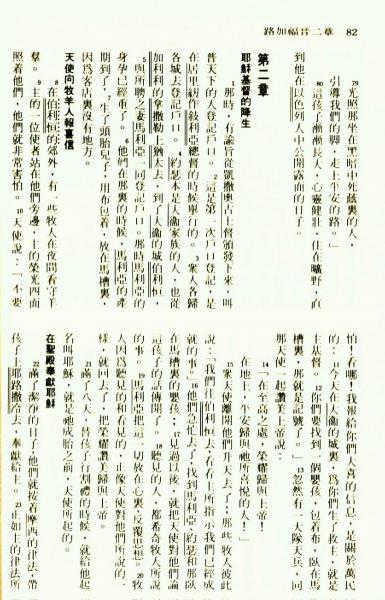 路加福音二章 82
79 光照那坐在黑暗中死蔭裏的人,
引導我們的腳,走上平安的路。」
80 這孩子漸漸長大,心靈健壯,住在曠野,直
到他在以色列人中公開露面的日子。
第二章
耶穌基督的降生
1 那時,有諭旨從凱撒奧古士督頒發下來,叫
普天下的人登記戶口。2 這是第一次戶口登記,是
在居里紐作敍利亞總督的時候舉行的。3 眾人各歸
各城去登記戶口。4 約瑟本是大衞家族的人,也從
加利利的拿撒勒上猶太去,到了大衞的城伯利恆,
5 與所聘之妻馬利亞一同登記戶口。那時馬利亞的
身孕已經重了。6 他們在那裏的時候,馬利亞的產
期到了,7 生了頭胎兒子,用布包着,放在馬槽裏,
因為客店裏沒有地方。
天使向牧羊人報喜信
8 在伯利恆的郊外,有一些牧人在夜間看守羊
羣。9 主的一位使者站在他們旁邊,主的榮光四面
照着他們,他們就非常害怕。10 天使說:「不要
怕!看哪!我報給你們大喜的信息,是關於萬民
的:11 今天在大衞的城裏,為你們生了救主,就是
主基督。12 你們要找到一個嬰孩,包着布,臥在馬
槽裏,那就是記號了。」13 忽然有一大隊天兵,同
那天使一起讚美上帝說:
14 「在至高之處,榮耀歸與上帝!
在地上,平安歸與祂所喜悅的人!」
15 眾天使離開他們升天去了;那些牧人彼此
說:「我們往伯利恆去看看主所指示我們已經成
就的事。」16 他們急忙去了,找到馬利亞、約瑟和那臥
在馬槽裏的嬰孩;17 見過以後,就把天使對他們論
這孩子的話傳開了。18 聽見的人,都希奇牧人所說
的事。19 馬利亞把這一切放在心裏,反覆思想。20 牧
人因為聽見的和看見的,正像天使對他們所說的一
樣,就回去了,把榮耀讚美歸與上帝。
21 滿了八天,替孩子行割禮的時候,就給他起
名叫耶穌,就是祂成胎之前,天使所起的。
在聖殿奉獻耶穌
22 滿了潔淨的日子,他們就按着摩西的律法,帶
孩子上耶路撒冷去,奉獻給主。23 正如主的律法所